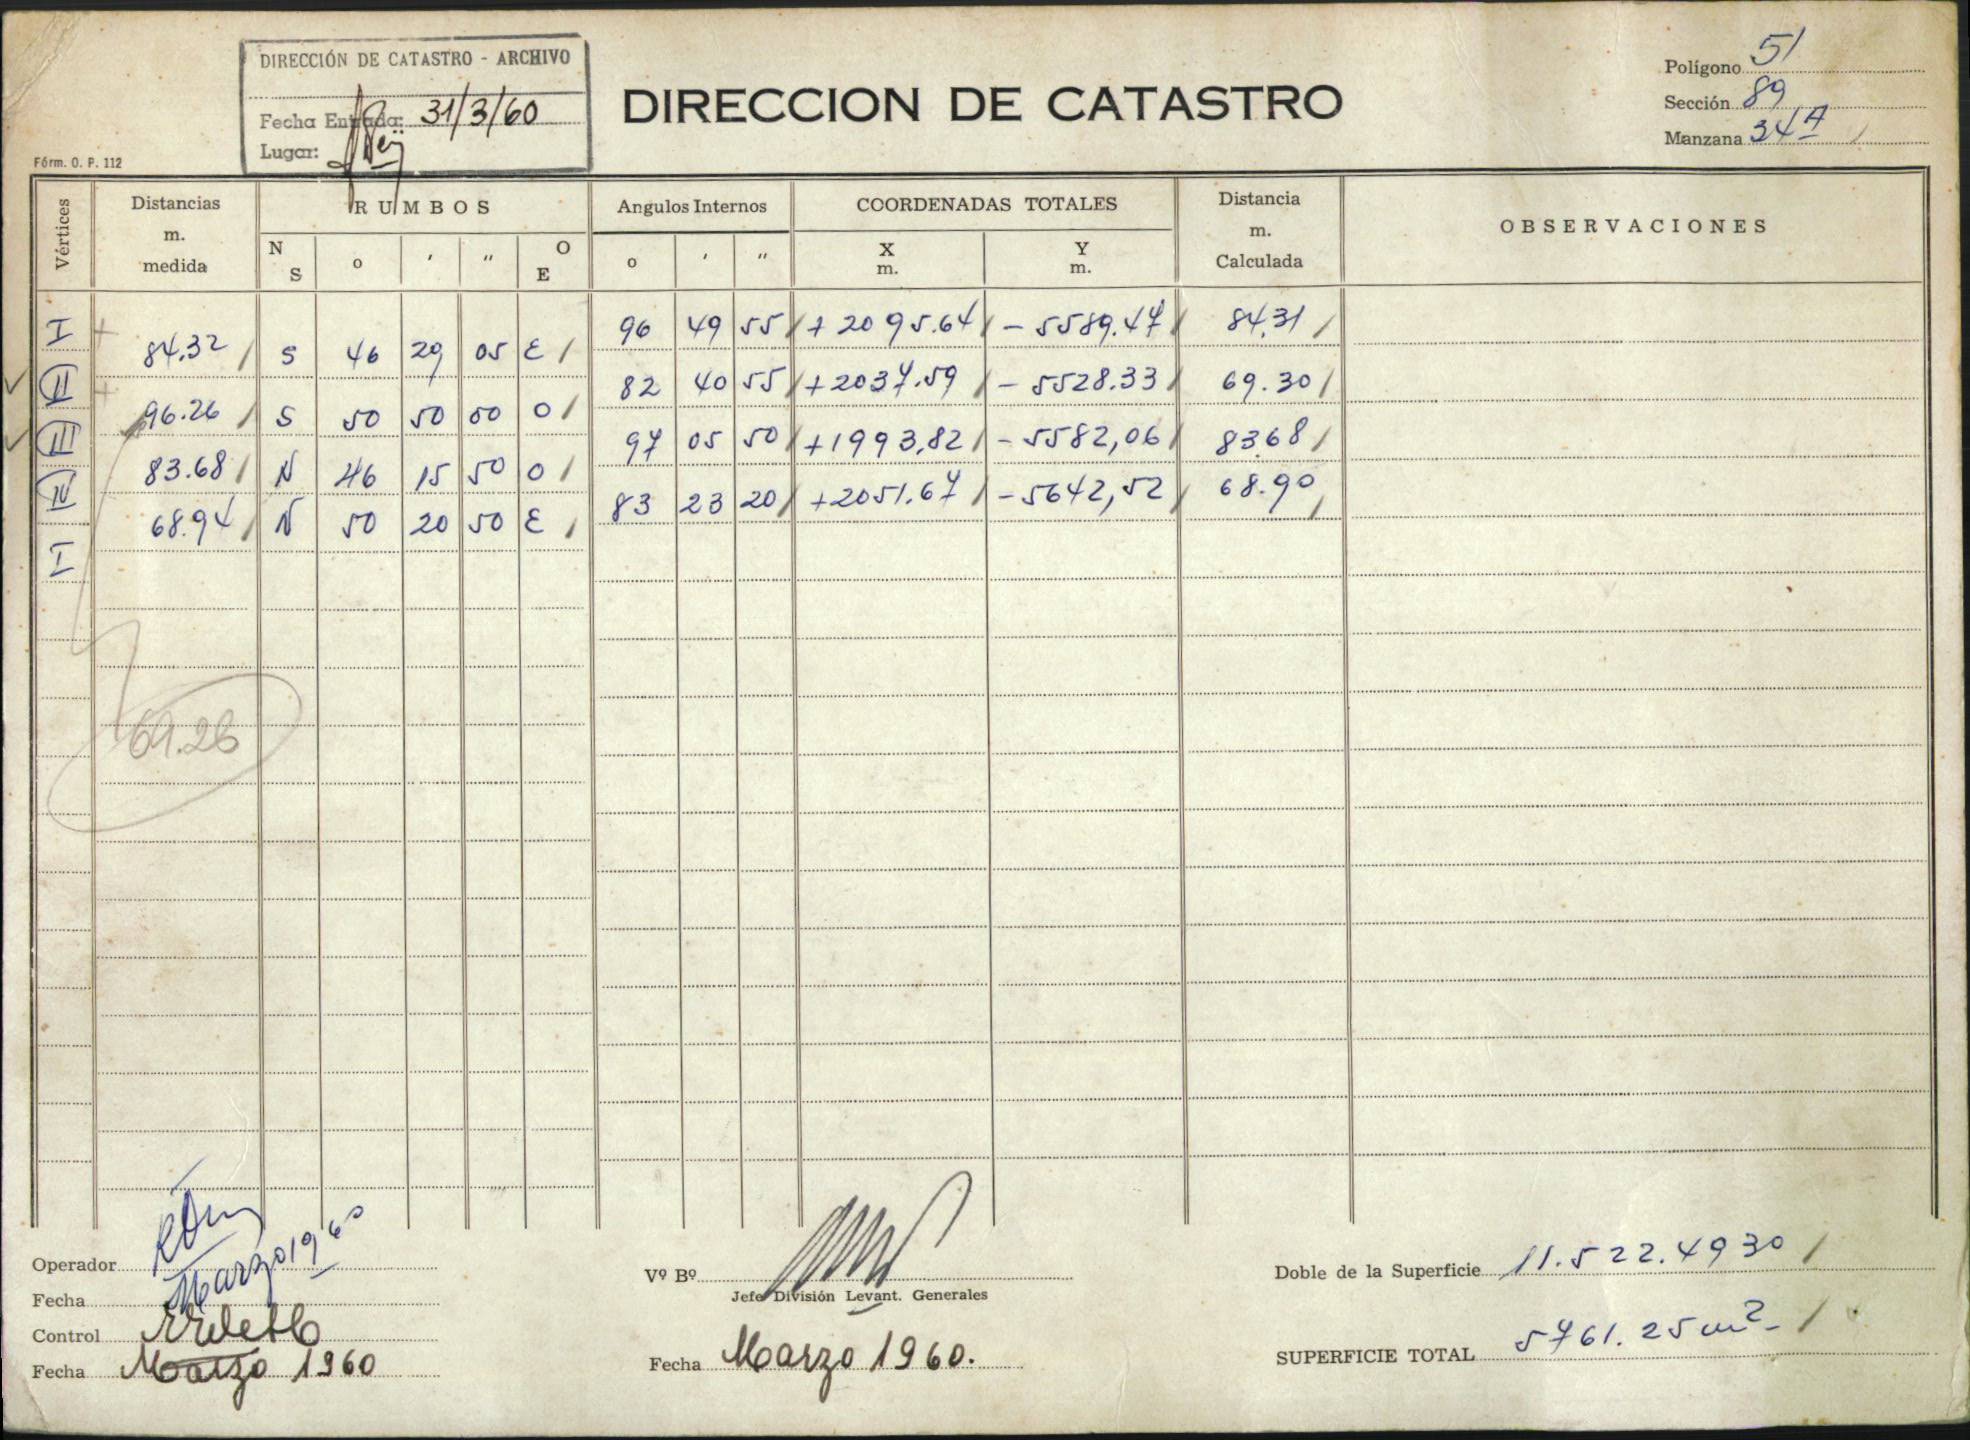 DIRECCIÓN DE CATASTRO - ARCHIVO
Fecha Entrada: 31/3/60
Lugar:
DIRECCION DE CATASTRO
Polígono 51
Sección 89
Manzana 34A
Fórm. O. P. 112
Vértices
Distancias m. medida
RUMBOS
N S o ′ ″ O E
Angulos Internos
o ′ ″
COORDENADAS TOTALES
X m. Y m.
Distancia m. Calculada
OBSERVACIONES
I 96 49 55 / + 2095.64 / - 5589.47 / 84.31 /
84.32 / S 46 29 05 E /
II 82 40 55 / + 2037.59 / - 5528.33 / 69.30 /
96.26 / S 50 50 00 O /
III 97 05 50 / + 1993,82 / - 5582,06 / 83.68 /
83.68 / N 46 15 50 O /
IV 83 23 20 / + 2051.67 / - 5642,52 / 68.90 /
68.94 / N 50 20 50 E /
I
69.26
Operador
Marzo 1960
Fecha
Control
Fecha Marzo 1960
Vº Bº
Jefe División Levant. Generales
Fecha Marzo 1960.
Doble de la Superficie 11.522.4930 /
SUPERFICIE TOTAL 5761.25 m2 - /